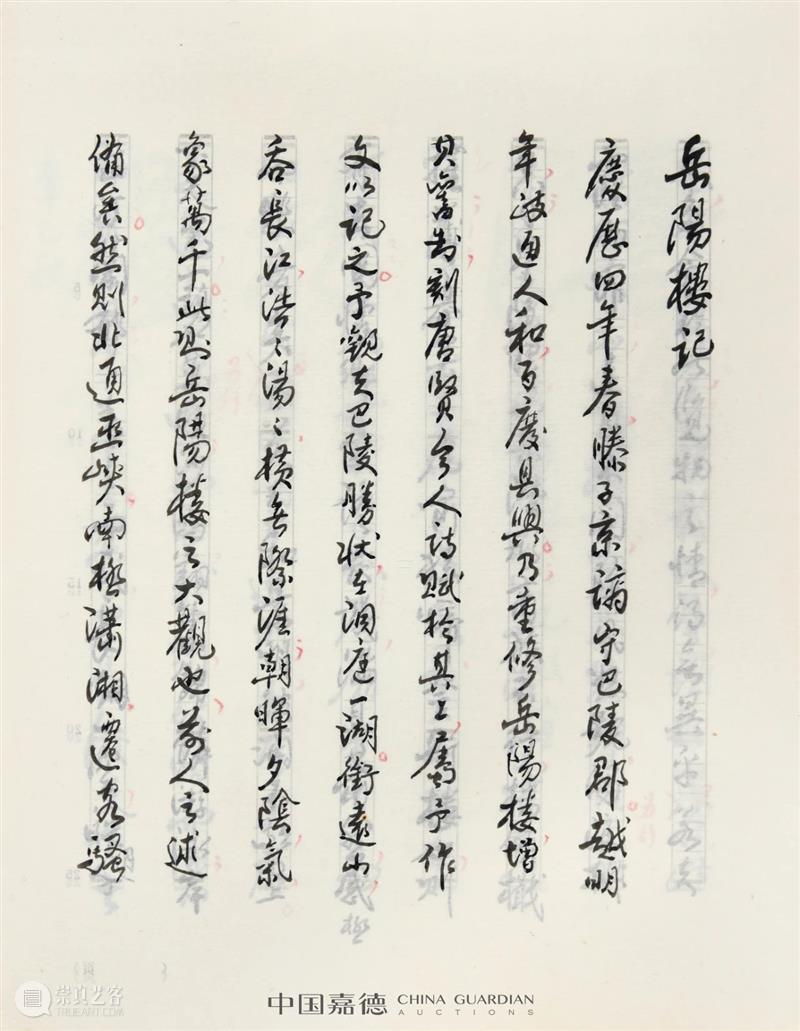 岳陽樓記
慶歷四年春滕子京謫守巴陵郡越明
年政通人和百廢具興乃重修岳陽樓增
其舊制刻唐賢今人詩賦於其上屬予作
文以記之予觀夫巴陵勝狀在洞庭一湖銜遠山
吞長江浩〻湯〻橫無際涯朝暉夕陰氣
象萬千此則岳陽樓之大觀也前人之述
備矣然則北通巫峽南極瀟湘遷客騷
中国嘉德 CHINA GUARDIAN
AUCTIONS
崇真艺客